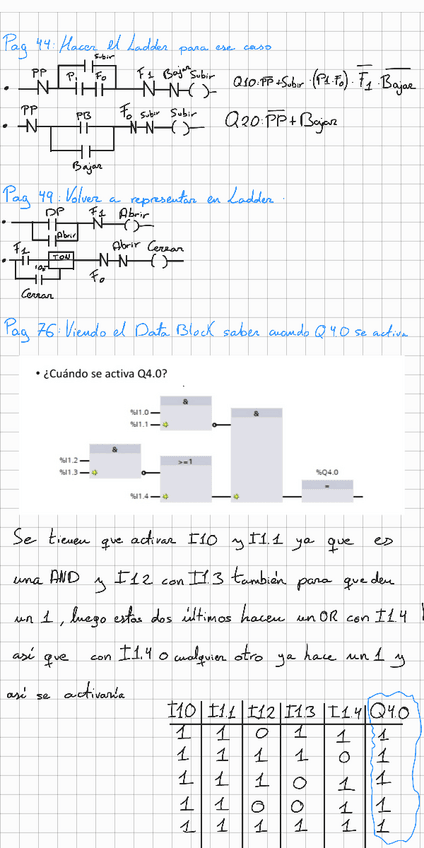 Pag 44: Hacer el Ladder para ese caso
Subir
PP P1 F0 F1 Bajar Subir
Q10: PP + Subir · (P1·F0) · F1 · Bajar
PP PB F0 Subir Subir
Q20: PP + Bajar
Bajar
Pag 49: Volver a representar en Ladder.
DP F1 Abrir
Abrir
F1 TON Abrir Cerrar
10s
F0
Cerrar
Pag 76: Viendo el Data Block saber cuando Q4.0 se activa
• ¿Cuándo se activa Q4.0?
&
%I1.0
%I1.1
&
&
%I1.2
%I1.3
>=1
%I1.4
%Q4.0
=
Se tienen que activar I10 y I1.1 ya que es
una AND y I12 con I13 también para que den
un 1, luego estas dos últimos hacen un OR con I1.4
así que con I1.4 o cualquier otro ya hace un 1 y
así se activaría
I10 I1.1 I12 I1.3 I1.4 Q4.0
1 1 0 1 1 1
1 1 1 1 0 1
1 1 1 0 1 1
1 1 0 0 1 1
1 1 1 1 1 1